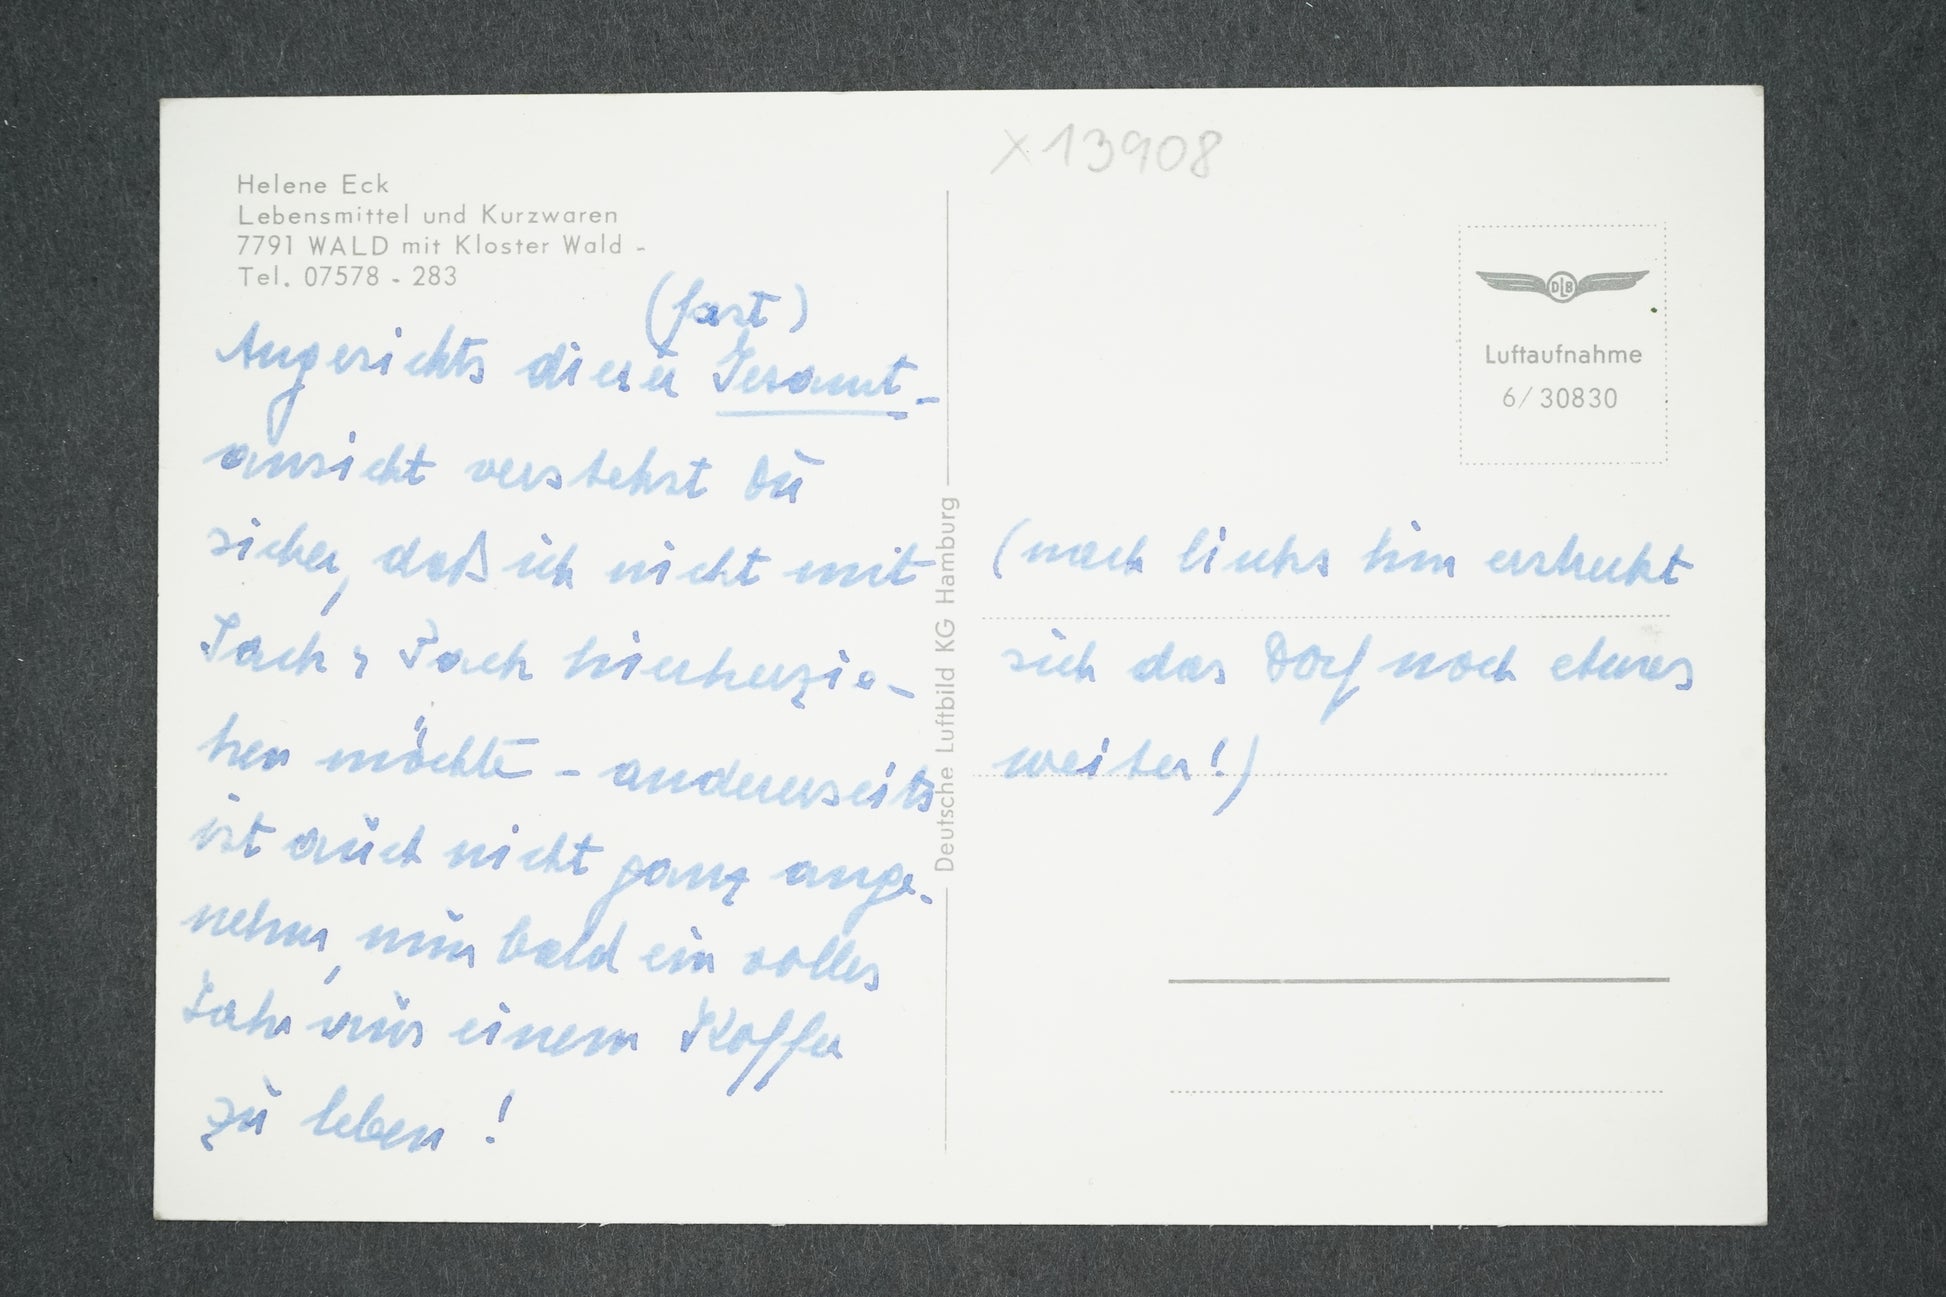 x13908
Helene Eck
Lebensmittel und Kurzwaren
7791 WALD mit Kloster Wald -
Tel. 07578 - 283
(fast)
Angesichts dieser Gesamt-
ansicht verstehst Du
sicher, daß ich nicht mit
Sach & Pach hierherzie-
hen möchte - andererseits
ist auch nicht ganz ange-
nehm, nun bald ein volles
Jahr aus einem Koffer
zu leben!
Deutsche Luftbild KG Hamburg
DLB
Luftaufnahme
6/30830
(nach links hin erstreckt
sich das Dorf noch etwas
weiter!)